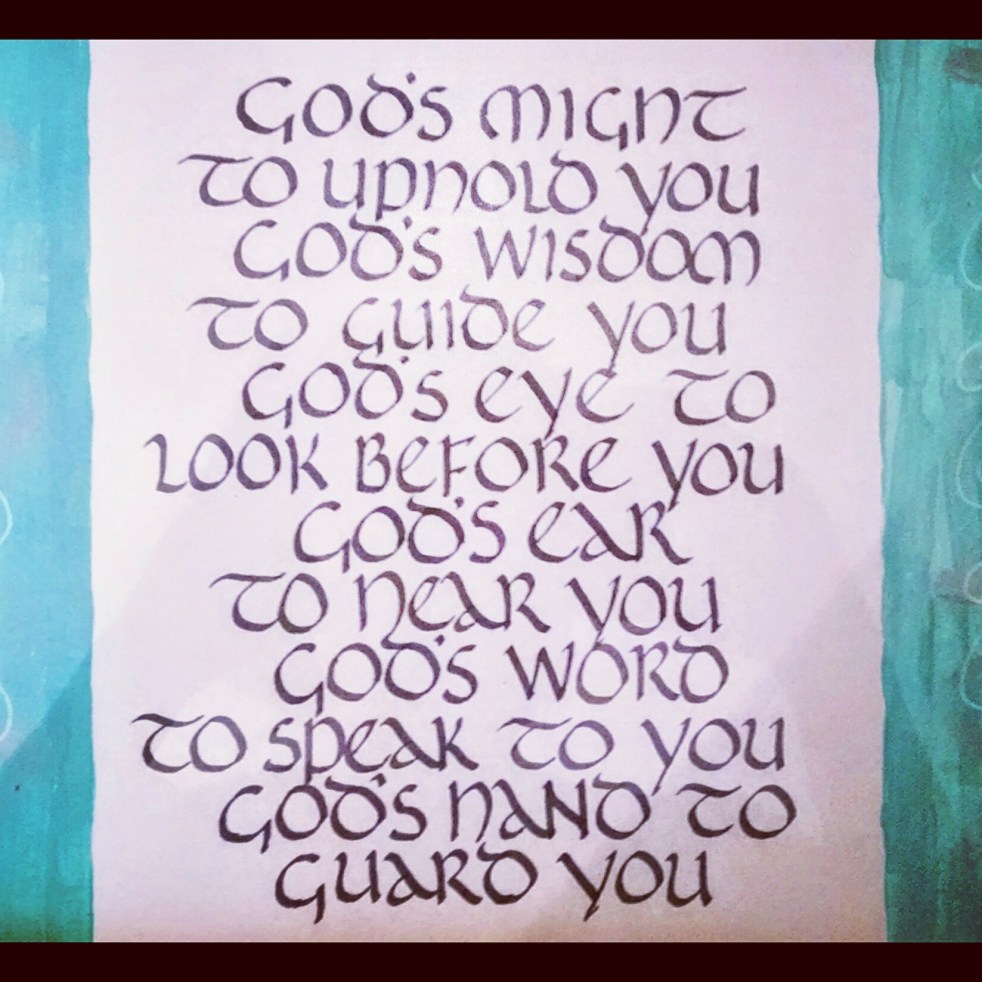 God's might
to uphold you
God's wisdom
to guide you
God's eye to
look before you
God's ear
to hear you
God's word
to speak to you
God's hand to
guard you